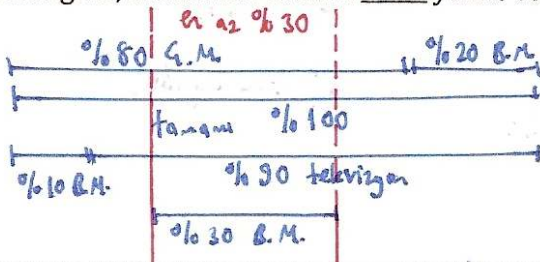 en az % 30
% 80 G.M. % 20 B.M.
tamamı % 100
% 10 B.M. % 90 televizyon
% 30 B.M.